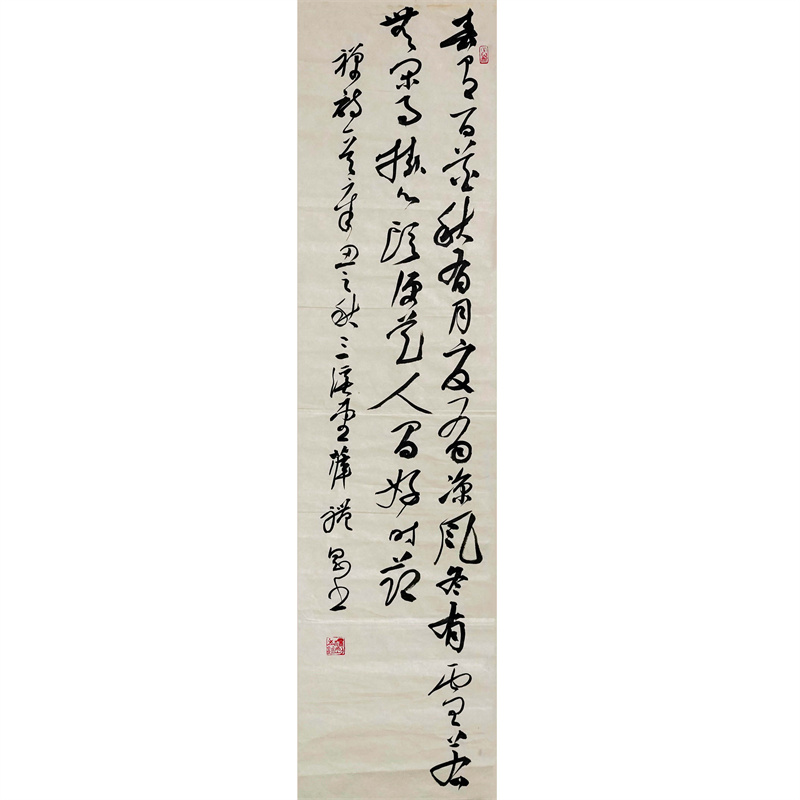 春有百花秋有月夏有凉风冬有雪若
無闲事挂心头便是人间好时节
禅诗一首辛丑之秋三溪堂